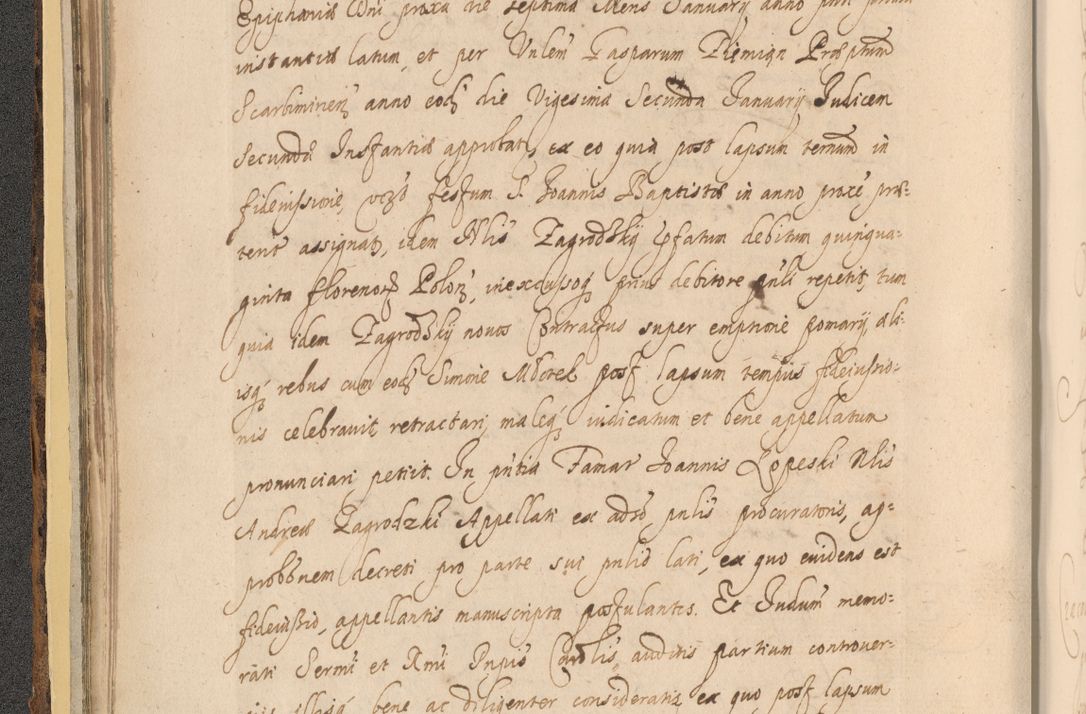 Epiphaniæ Dni proxa die septima Mens January anno
instantiæ latum, et per Vnlem Gasparum Ziemian Præptum
Scarbimirien anno eod die Vigesima Secunda January Judicem
Secundæ Instantiæ approbat, ex eo quia post lapsum termini in
fideiussione, vczo festum S. Joannis Baptistæ in anno proxe præ-
terit assignat, idem Nlis Zagrodsky pfatum debitum quinqua-
ginta florenor Polon, inexcussoq prius debitore pnli repetit, tum
quia idem Zagrodsky novos Contractus super emptione pomarij ali-
isq rebus cum eod Simone Mborek post lapsum tempus fideiussio-
nis celebravit retractari, maleq iudicatum et bene appellatum
pronunciari petiit. In pntia Famati Joannis Lopeski Nlis
Andreæ Zagrodzki Appellati ex adso pnlis procuratoris, ap-
probbnem decreti pro parte sui pnlio lati, ex quo evidens est
fideiussio, appellantis manuscripta postulantis. Et Judum memo-
rati Sermi et Rmi Pnpis Cardlis, auditis partium controver-
bene ac diligenter consideratis, ex quo post lapsum